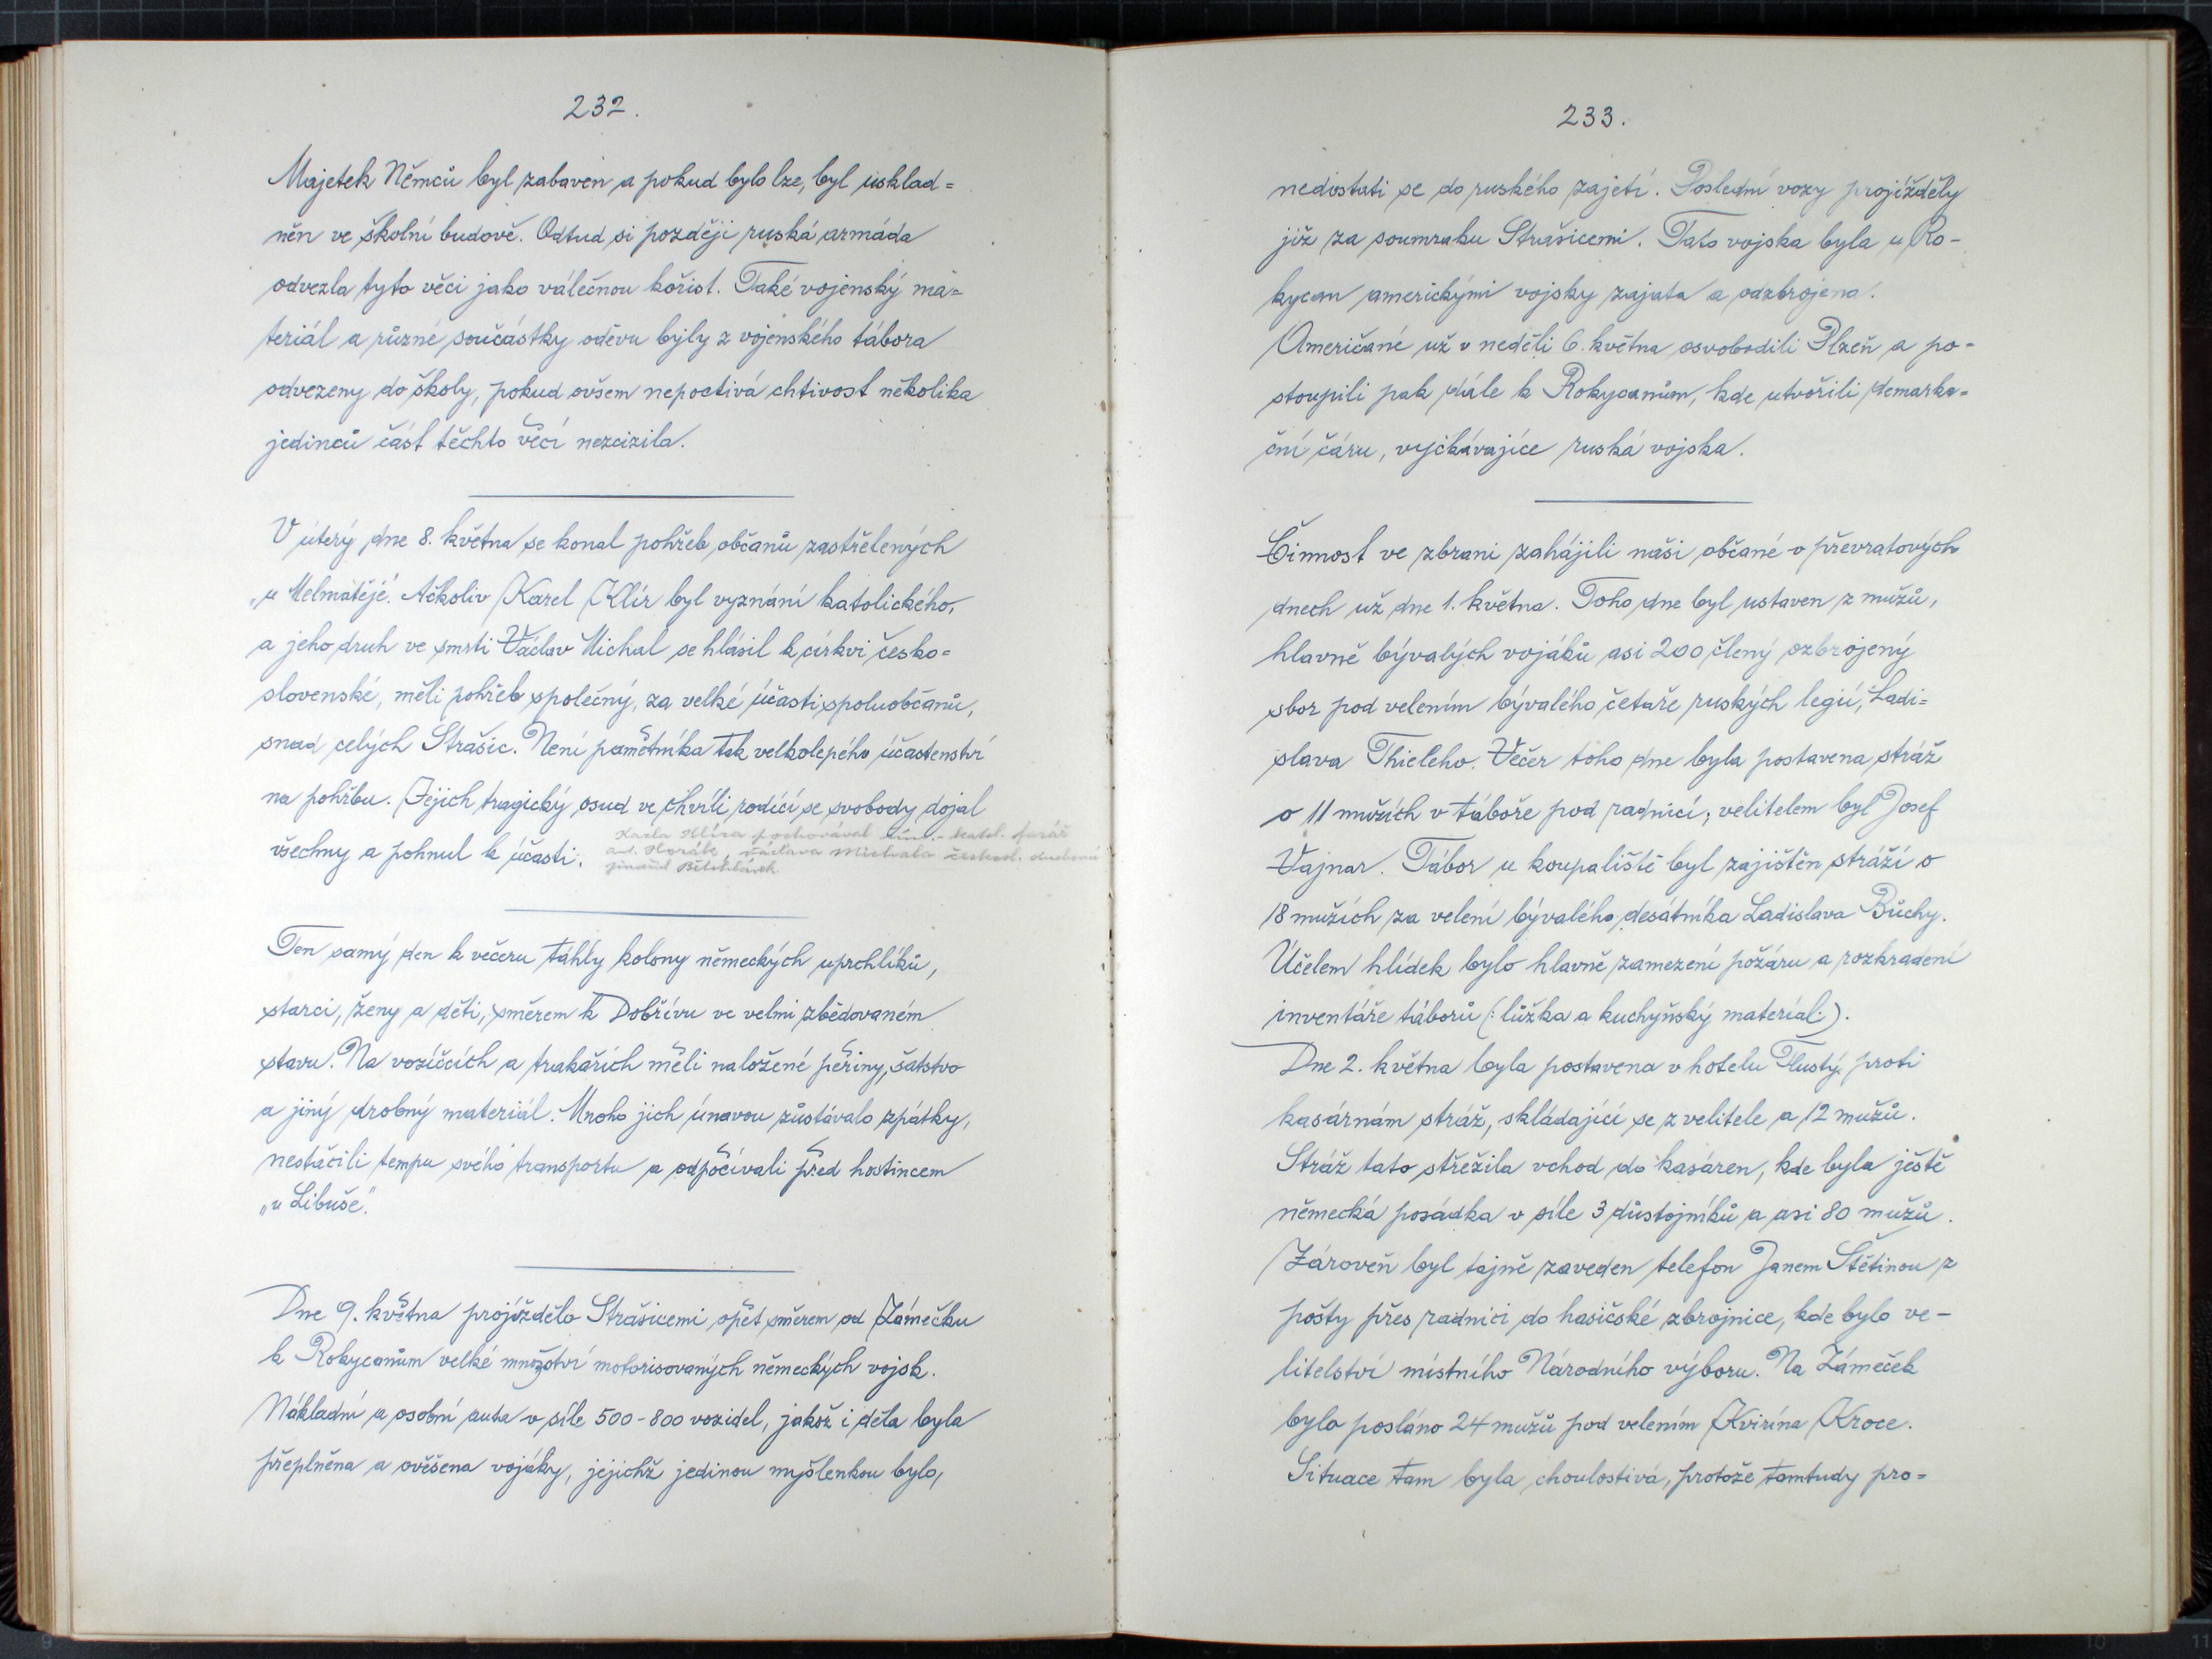 232.
Majetek Němců byl zabaven a pokud bylo lze, byl usklad=
něn ve školní budově. Odtud si později ruská armáda
odvezla tyto věci jako válečnou kořist. Také vojenský ma=
teriál a různé součástky oděvu byly z vojenského tábora
odvezeny do školy, pokud ovšem nepoctivá chtivost několika
jedinců část těchto věcí nezcizila.
V úterý dne 8. května se konal pohřeb občanů zastřelených
Ačkoliv Karel Klír byl vyznání katolického,
a jeho druh ve smrti Václav Michal se hlásil k církvi česko=
slovenské, měli pohřeb společný, za velké účasti spoluobčanů,
snad celých Strašic. Není pamětníka tak velkolepého účastenství
na pohřbu. Jejich tragický osud ve chvíli rodící se svobody dojal
všechny a pohnul k účasti.
Karla Klíra pochovával řím.-katol. farář
Ant. Horák, Václava Michala českosl. duchovní
Bělohlávek.
Ten samý den k večeru táhly kolony německých uprchlíků,
starci, ženy a děti, směrem k Dobřívu ve velmi zbědovaném
stavu. Na vozíčcích a trakařích měli naložené peřiny, šatstvo
a jiný drobný materiál. Mnoho jich únavou zůstávalo zpátky,
nestačili tempu svého transportu a odpočívali před hostincem
„u Libuše."
Dne 9. května projíždělo Strašicemi opět směrem od Zámečku
k Rokycanům velké množství motorisovaných německých vojsk.
Nákladní a osobní auta v síle 500-800 vozidel, jakož i děla byla
přeplněna a ověšena vojáky, jejichž jedinou myšlenkou bylo,
233.
nedostati se do ruského zajetí. Poslední vozy projížděly
již za soumraku Strašicemi. Tato vojska byla u Ro-
kycan americkými vojsky zajata a odzbrojena.
Američané už v neděli 6. května osvobodili Plzeň a po=
stoupili pak dále k Rokycanům, kde utvořili demarka=
ční čáru, vyčkávajíce ruská vojska.
Činnost ve zbrani zahájili naši občané v převratových
dnech už dne 1. května. Toho dne byl ustaven z mužů,
hlavně bývalých vojáků asi 200 člený ozbrojený
sbor pod velením bývalého četaře ruských legií, Ladi=
slava Thieleho. Večer toho dne byla postavena stráž
o 11 mužích v táboře pod radnicí; velitelem byl Josef
Vajnar. Tábor u koupaliště byl zajištěn stráží o
18 mužích za velení bývalého desátníka Ladislava Bůchy.
Účelem hlídek bylo hlavně zamezení požáru a rozkradení
inventáře táborů (: lůžka a kuchyňský materiál:).
Dne 2. května byla postavena v hotelu Tlustý proti
kasárnám stráž, skládající se z velitele a 12 mužů.
Stráž tato střežila vchod do kasáren, kde byla ještě
německá posádka v síle 3 důstojníků a asi 80 mužů.
Zároveň byl tajně zaveden telefon Janem Štětinou z
pošty přes radnici do hasičské zbrojnice, kde bylo ve-
litelství místního Národního výboru. Na Zámeček
bylo posláno 24 mužů pod velením Kvirína Kroce.
Situace tam byla choulostivá, protože tamtudy pro=